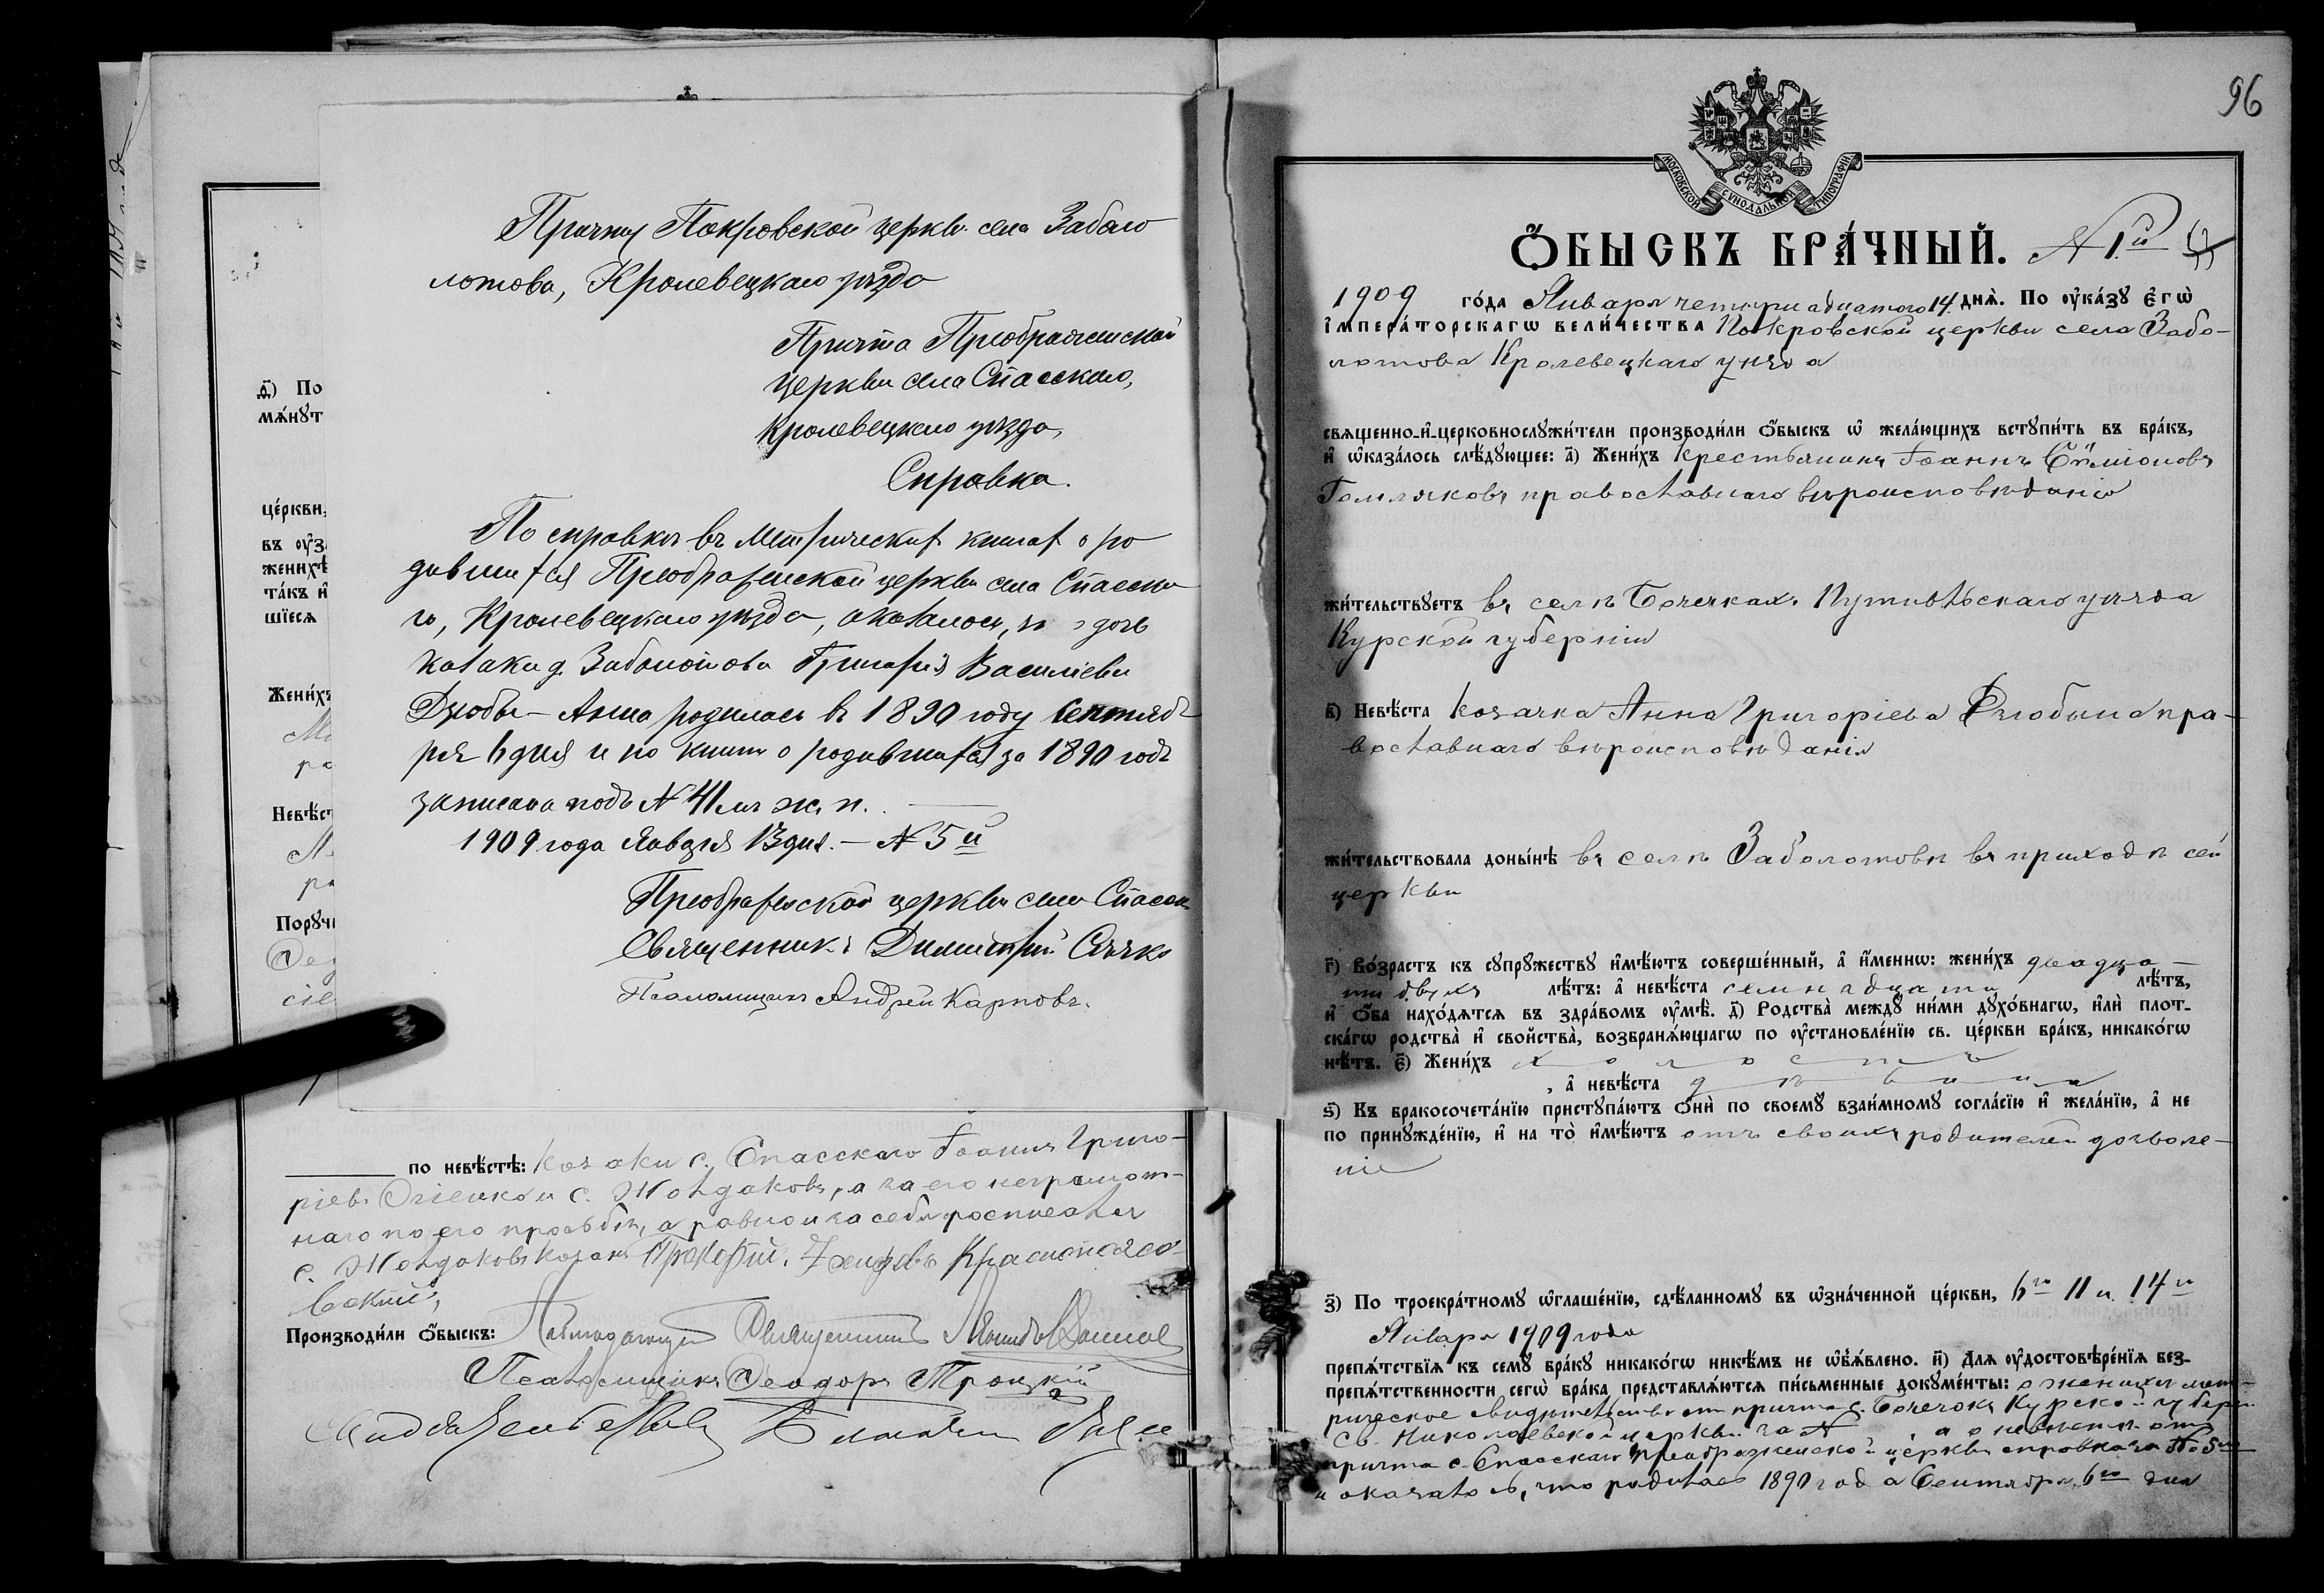 Причту Покровской церкви села Забало
лотова, Кролевецкаго уѣзда
Причта Преображенской
церкви села Спасскаго,
Кролевецкаго уѣзда,
Справка.
По справкѣ въ метрическихъ книгахъ о ро
дившихся Преображенской церкви села Спасска
го, Кролевецкаго уѣзда, оказалось, дочь
казака д. Заболотова Григорія Василіева
Дзюбы – Анна родилась въ 1890 году Сентяб
ря 6 дня и по книгѣ о родившихся за 1890 годъ
записана подъ № 41 мъ ж. п.
1909 года Января 13 дня. – № 5й
Преображенской церкви села Спасск
Священникъ Димитрій Сѣчко
Псаломщикъ Андрей Карповъ.
д) По
мѧ́нꙋт
це́ркви,
въ оу҆з
жених
та́къ и҆
шїесѧ
Жени́хъ
Невѣ́ст
Порꙋч
по невѣ́стѣ: козаки с. Спасскаго Іоаннъ Григо-
ріевъ Огіенко и с. Жолдаковъ, а за его неграмот-
наго по его просьбѣ, а равно и за себя росписался
с. Жолдаковъ козакъ Прокофій Краснопоясо-
вскій,
Производи́ли ѻ҆́быскъ: Наблюдающій Священникъ
Псаломщикъ Ѳеодоръ Троицкій
96
МОСКОВСКОЙ СѴНОДАЛЬНОЙ ТИПОГРАФІИ
Ѻ҆́БЫСКЪ БРА́ЧНЫЙ. № 1й
1909 го́да Января четырнадцатаго 14 днѧ̀. По оу҆ка́зꙋ є҆гѡ̀
і҆мпера́торскагѡ вели́чества Покровской церкви села Забо-
лотова Кролевецкаго уѣзда
свѧщенно-и҆-церковнослꙋжи́тели производи́ли ѻ҆́быскъ ѡ҆ жела́ющихъ встꙋпи́ть въ бра́къ,
и҆ ѡ҆каза́лось слѣ́дꙋющее: а҃) Жени́хъ Крестьянинъ Іоаннъ Симіоновъ
православнаго вѣроисповѣданія
жи́тельствꙋетъ въ селѣ Бочечкахъ Путивльскаго уѣзда
Курской губерніи
в҃) Невѣ́ста козачка Анна Григоріева Дзюбына пра-
вославнаго вѣроисповѣданія
жи́тельствовала доны́нѣ въ селѣ Заболотовѣ въ приходѣ сей
церкви
г҃) Во́зрастъ къ сꙋпрꙋ́жествꙋ и҆мѣ́ютъ соверше́нный, а҆ и҆́меннѡ: жени́хъ двадца-
ти двухъ лѣ́тъ: а҆ невѣ́ста семнадцати лѣ́тъ,
и҆ ѻ҆́ба нахо́дѧтсѧ въ здра́вомъ оу҆мѣ̀. д҃) Родства̀ междꙋ̀ ни́ми дꙋхо́внагѡ, и҆лѝ плот-
ска́гѡ родства̀ и҆ свойства̀, возбранѧ́ющагѡ по оу҆становле́нїю св. це́ркви бра́къ, никако́гѡ
нѣ́тъ. є҃) Жени́хъ холостъ
, а҆ невѣ́ста дѣвица
ѕ҃) Къ бракосочета́нїю пристꙋпа́ютъ ѻ҆нѝ по своемꙋ̀ взаи́мномꙋ согла́сїю и҆ жела́нїю, а҆ не
по принꙋжде́нїю, и҆ на то̀ и҆мѣ́ютъ отъ своихъ родителей дозволе-
ніе
з҃) По троекра́тномꙋ ѡ҆глаше́нїю, сдѣ́ланномꙋ въ ѡ҆зна́ченной це́ркви, 6го 11 и 14го
Января 1909 года
препѧ́тствїѧ къ семꙋ̀ бра́кꙋ никако́гѡ никѣ́мъ не ѡ҆б̾ѧ́влено. и҃) Длѧ оу҆достовѣре́нїѧ без-
препѧ́тственности сегѡ̀ бра́ка представлѧ́ютсѧ пи́сьменные докꙋме́нты: о женихѣ мет-
рическое свидѣтельство отъ причта с. Бочечокъ Курской губерн
Св. Николаевской церкви за № , а о невѣстѣ отъ
причта с. Спасскаго Преображенской церкви справка за № 5мъ
и оказалось, что родилась 1890 года Сентября 6го дня